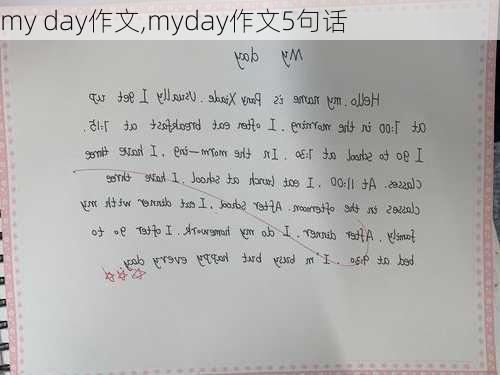 my day作文,myday作文5句话
My day
Hello. my name is Pany Xiade. Usually I get up
at 7:00 in the morning. I often eat breakfast at 7:15.
I go to school at 7:30. In the morn-ing, I have three
classes. At 11:00, I eat lunch at school. I have three
classes in the afternoon. After school, I eat dinner with my
family. After dinner, I do my homework. I ofter go to
bed at 9:30. I m busy but happy every day